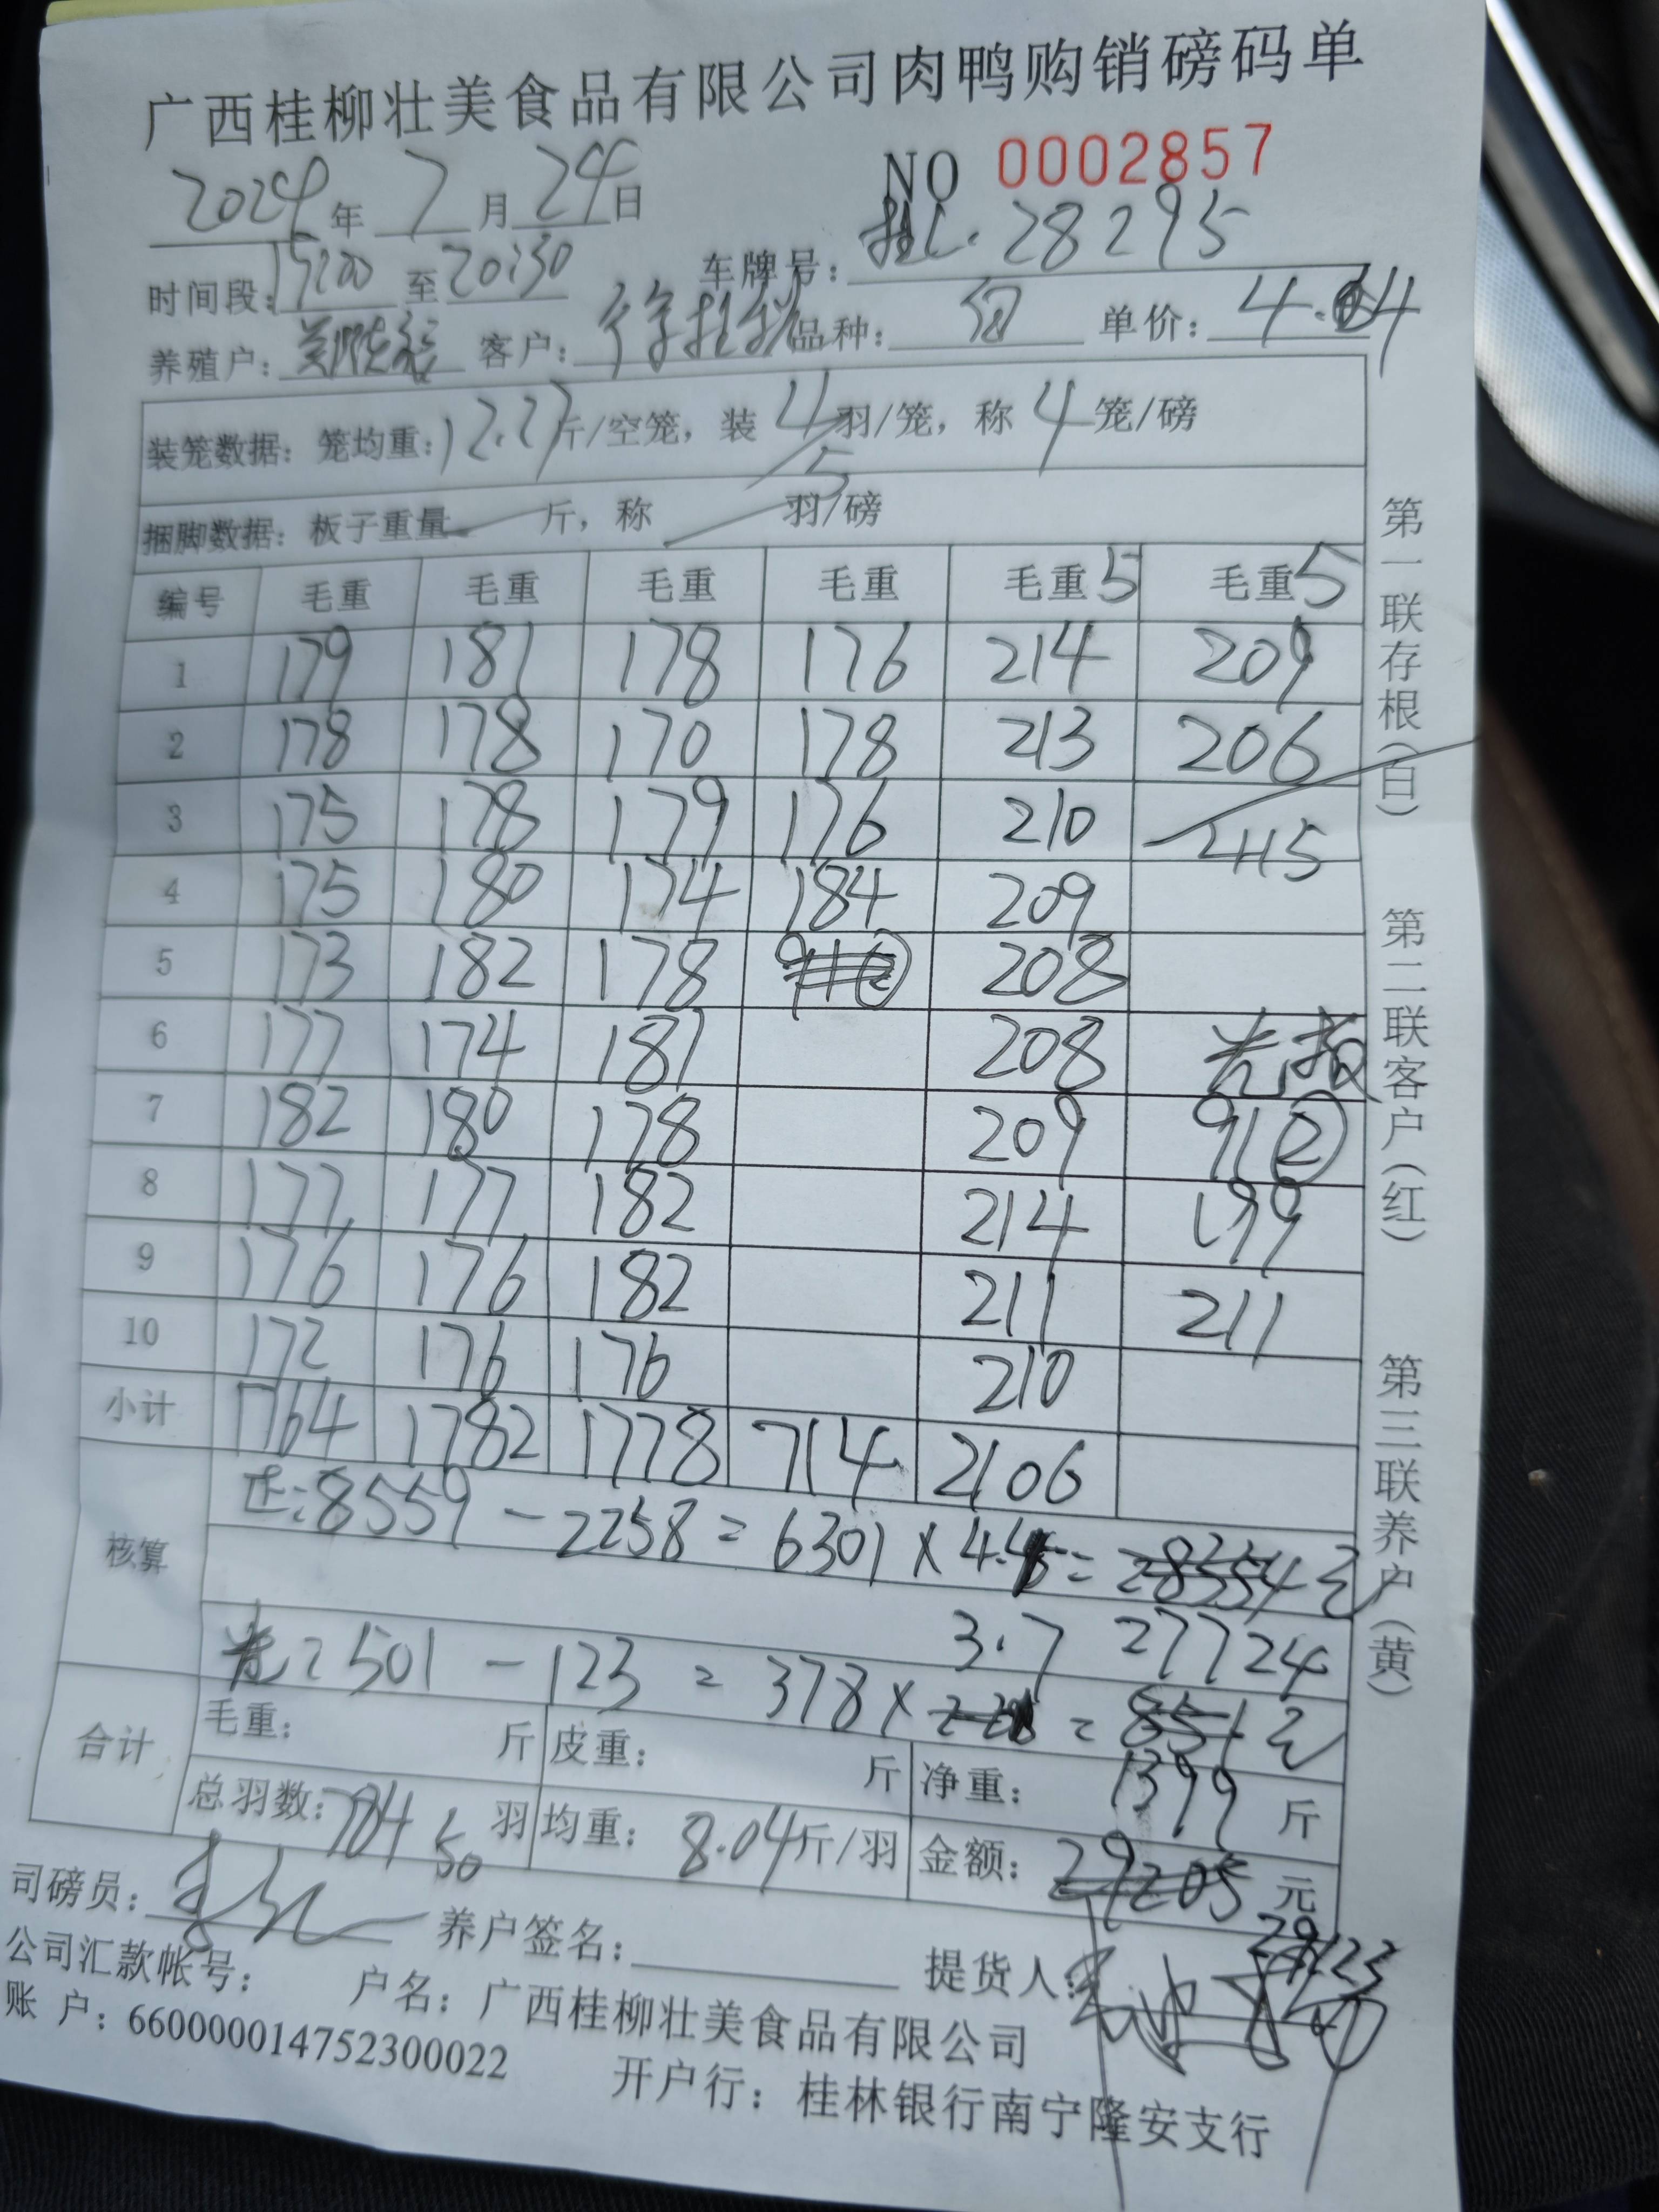 广西桂柳壮美食品有限公司肉鸭购销磅码单
2024年 7月 24日 NO 0002857
时间段:15:00 至 20:30 车牌号: 桂L·28295
养殖户: 客户: 品种: 单价: 4.4
装笼数据: 笼均重: 12.27斤/空笼, 装 4羽/笼, 称 4笼/磅
5
捆脚数据: 板子重量 斤, 称 羽/磅
编号 毛重 毛重 毛重 毛重 毛重5 毛重5
1 179 181 178 176 214 209
2 178 178 170 178 213 206
3 175 178 179 176 210 415
4 175 180 174 184 209
5 173 182 178 208
6 177 174 181 208 光板
7 182 180 178 209 91②
8 177 177 182 214 199
9 176 176 182 211 211
10 172 176 176 210
小计 1764 1782 1778 714 2106
核算 正:8559 - 2258 = 6301 × 4.4 = 28354元
3.7 27724
光: 501 - 123 = 378 × = 851元
1399
合计 毛重: 斤 皮重: 斤 净重: 斤
总羽数: 784 羽 均重: 8.04斤/羽 金额: 29205 元
50
29123
司磅员: 养户签名: 提货人:
公司汇款帐号: 户名: 广西桂柳壮美食品有限公司
账 户: 660000014752300022 开户行: 桂林银行南宁隆安支行
第一联存根(白) 第二联客户(红) 第三联养户(黄)